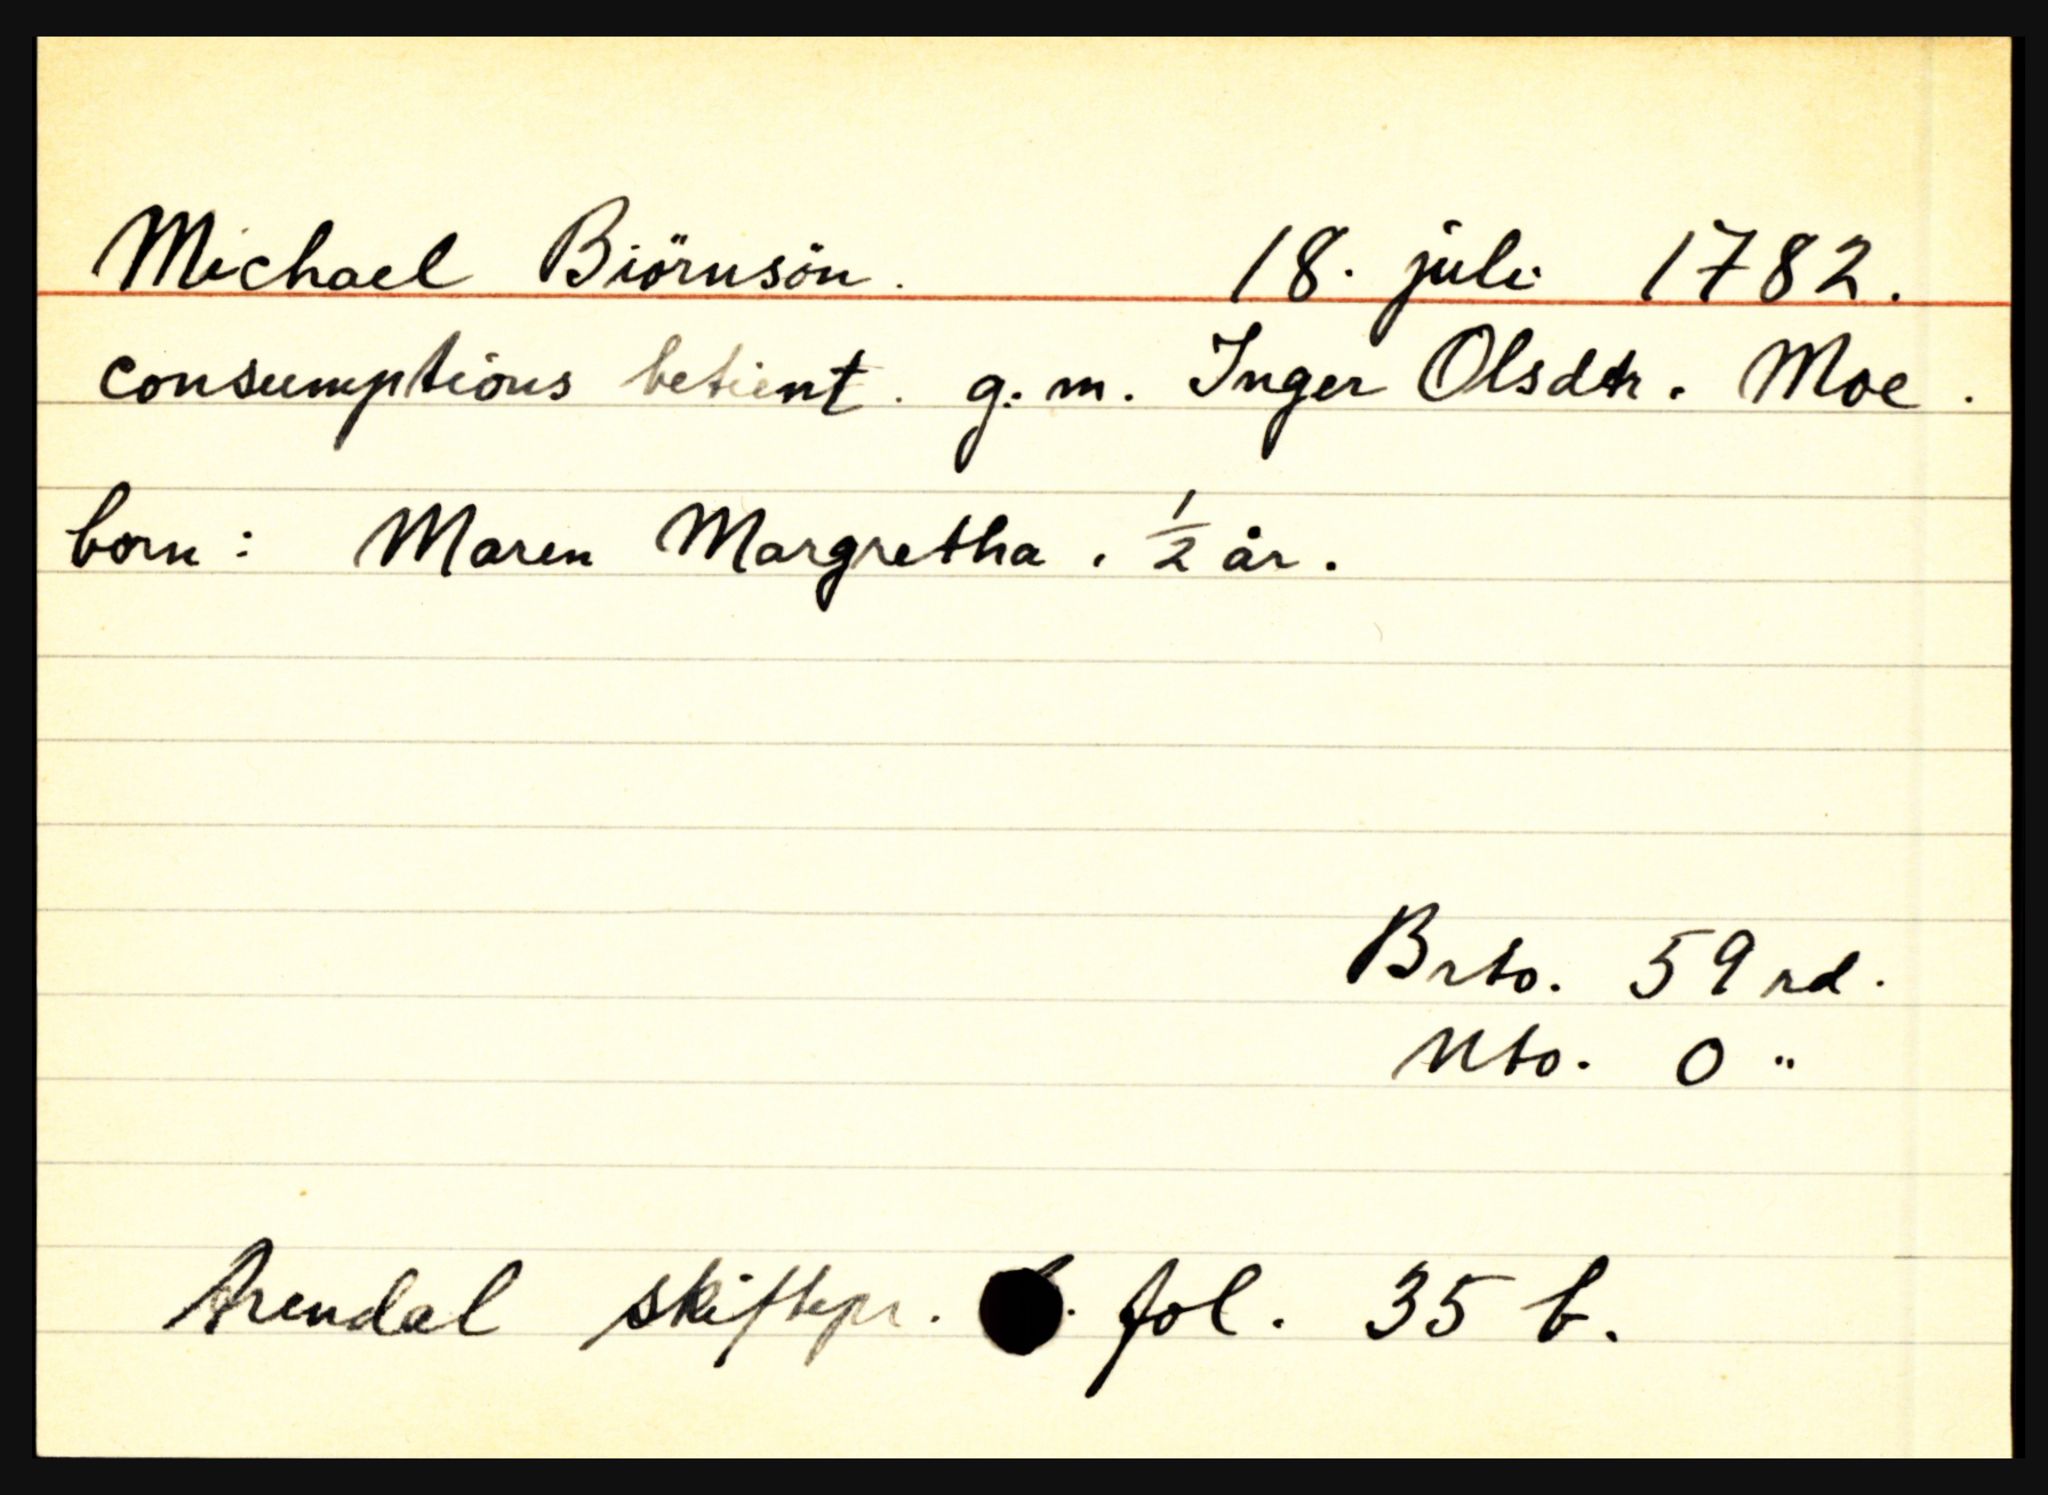 Michael Biörnsön. 18. juli 1782.
consumptions betient. g. m. Inger Olsdtr. Moe.
born: Maren Margretha. ½ år.
Brto. 59 rd.
Nto. 0 "
Arendal skiftepr. fol. 35 b.